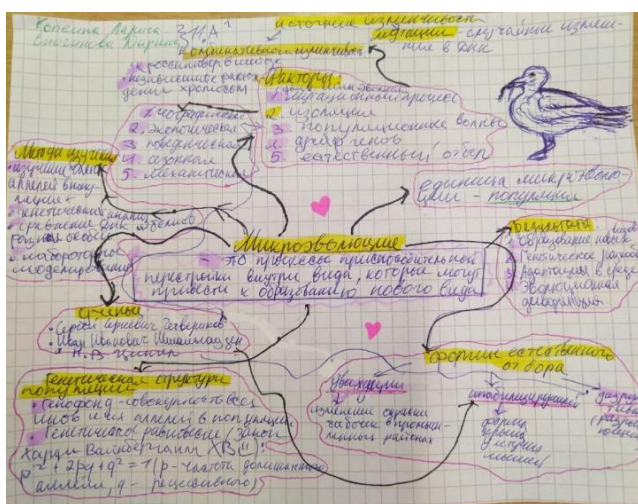 Марина 211А
источники изменчивости
мутации - случайные изменения в ДНК
Комбинативная изменчивость
• кроссинговер в мейозе
• независимое расхождение хромосом
Факторы:
1. мутационный процесс
2. изоляция
3. популяционные волны
4. дрейф генов
5. естественный отбор
1. географическая
2. экологическая
3. поведенческая
4. сезонная
5. механическая
Методы изучения
• изучение частот
аллелей в популяции
• генетический анализ
• сравнение ДНК
разных особей
• лабораторное
моделирование
единица микроэволюции - популяция
Микроэволюция
- это процессы приспособительной
перестройки внутри вида, которые могут
привести к образованию нового вида
Результаты
1. Образование новых видов
2. Генетическое
3. Адаптации к среде
4. Эволюционная
Учёные
• Сергей Сергеевич Четвериков
• Иван Иванович Шмальгаузен
Генетическая структура
популяции
• Генофонд - совокупность всех
генов и их аллелей в популяции
• Генетическое равновесие (Закон
Харди Вайнберга)
p² + 2pq + q² = 1 (p - частота доминантного
аллеля, q - рецессивного)
формы естественного
отбора
Движущий
изменение окраски
бабочек в промышленных районах
стабилизирующий
форма
крыла
у